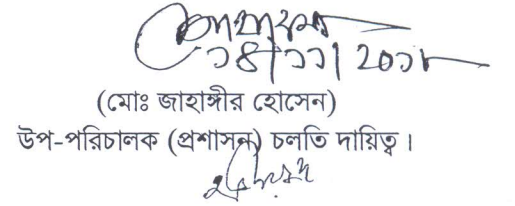 ১৪/১১/২০১৮
(মোঃ জাহাঙ্গীর হোসেন)
উপ-পরিচালক (প্রশাসন) চলতি দায়িত্ব।